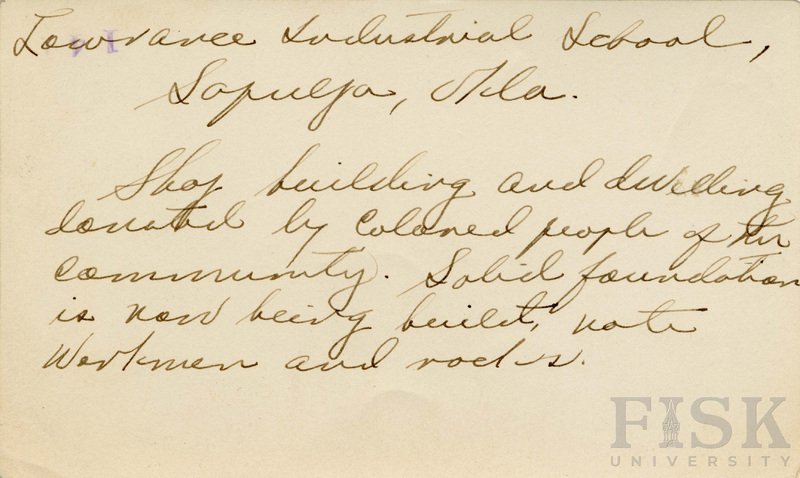 Lowrance Industrial School,
Sapulpa, Okla.
Shop building and dwelling
donated by colored people of the
community. Solid foundation
is now being built, note
workmen and rocks.
FISK
UNIVERSITY